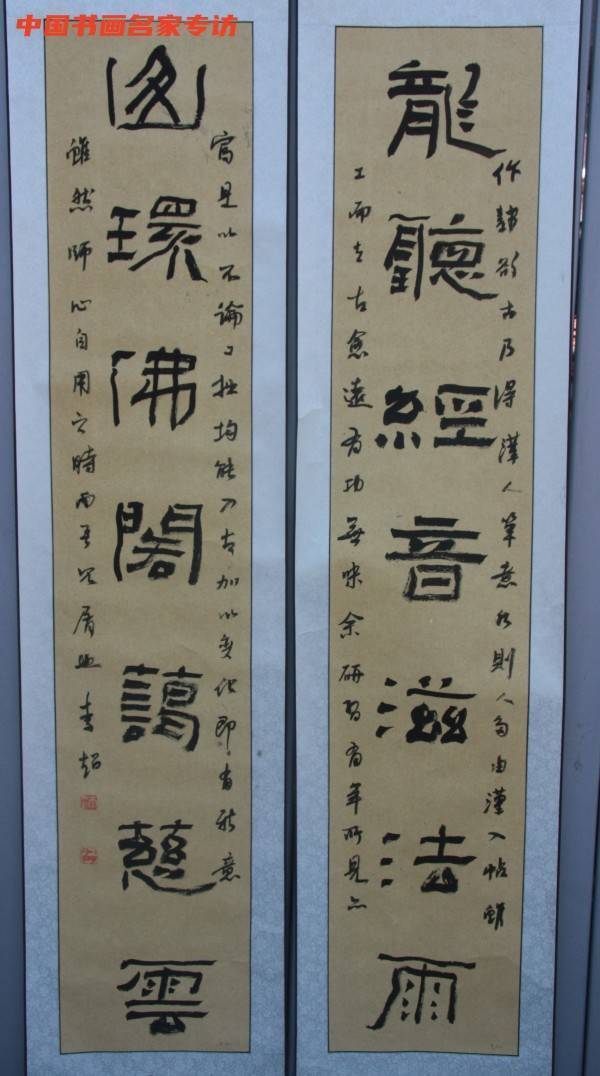 中国书画名家专访
龍聽經音滋法雨
作隸欲古乃得漢人筆意 則人多由漢入帖雖
工而去古愈遠有功無味余研習有年所見亦
寡是以不論工拙均能入古加以變化即有新意
山環佛閣藹慈雲
雖然師心自用之時而吾 屑也李超